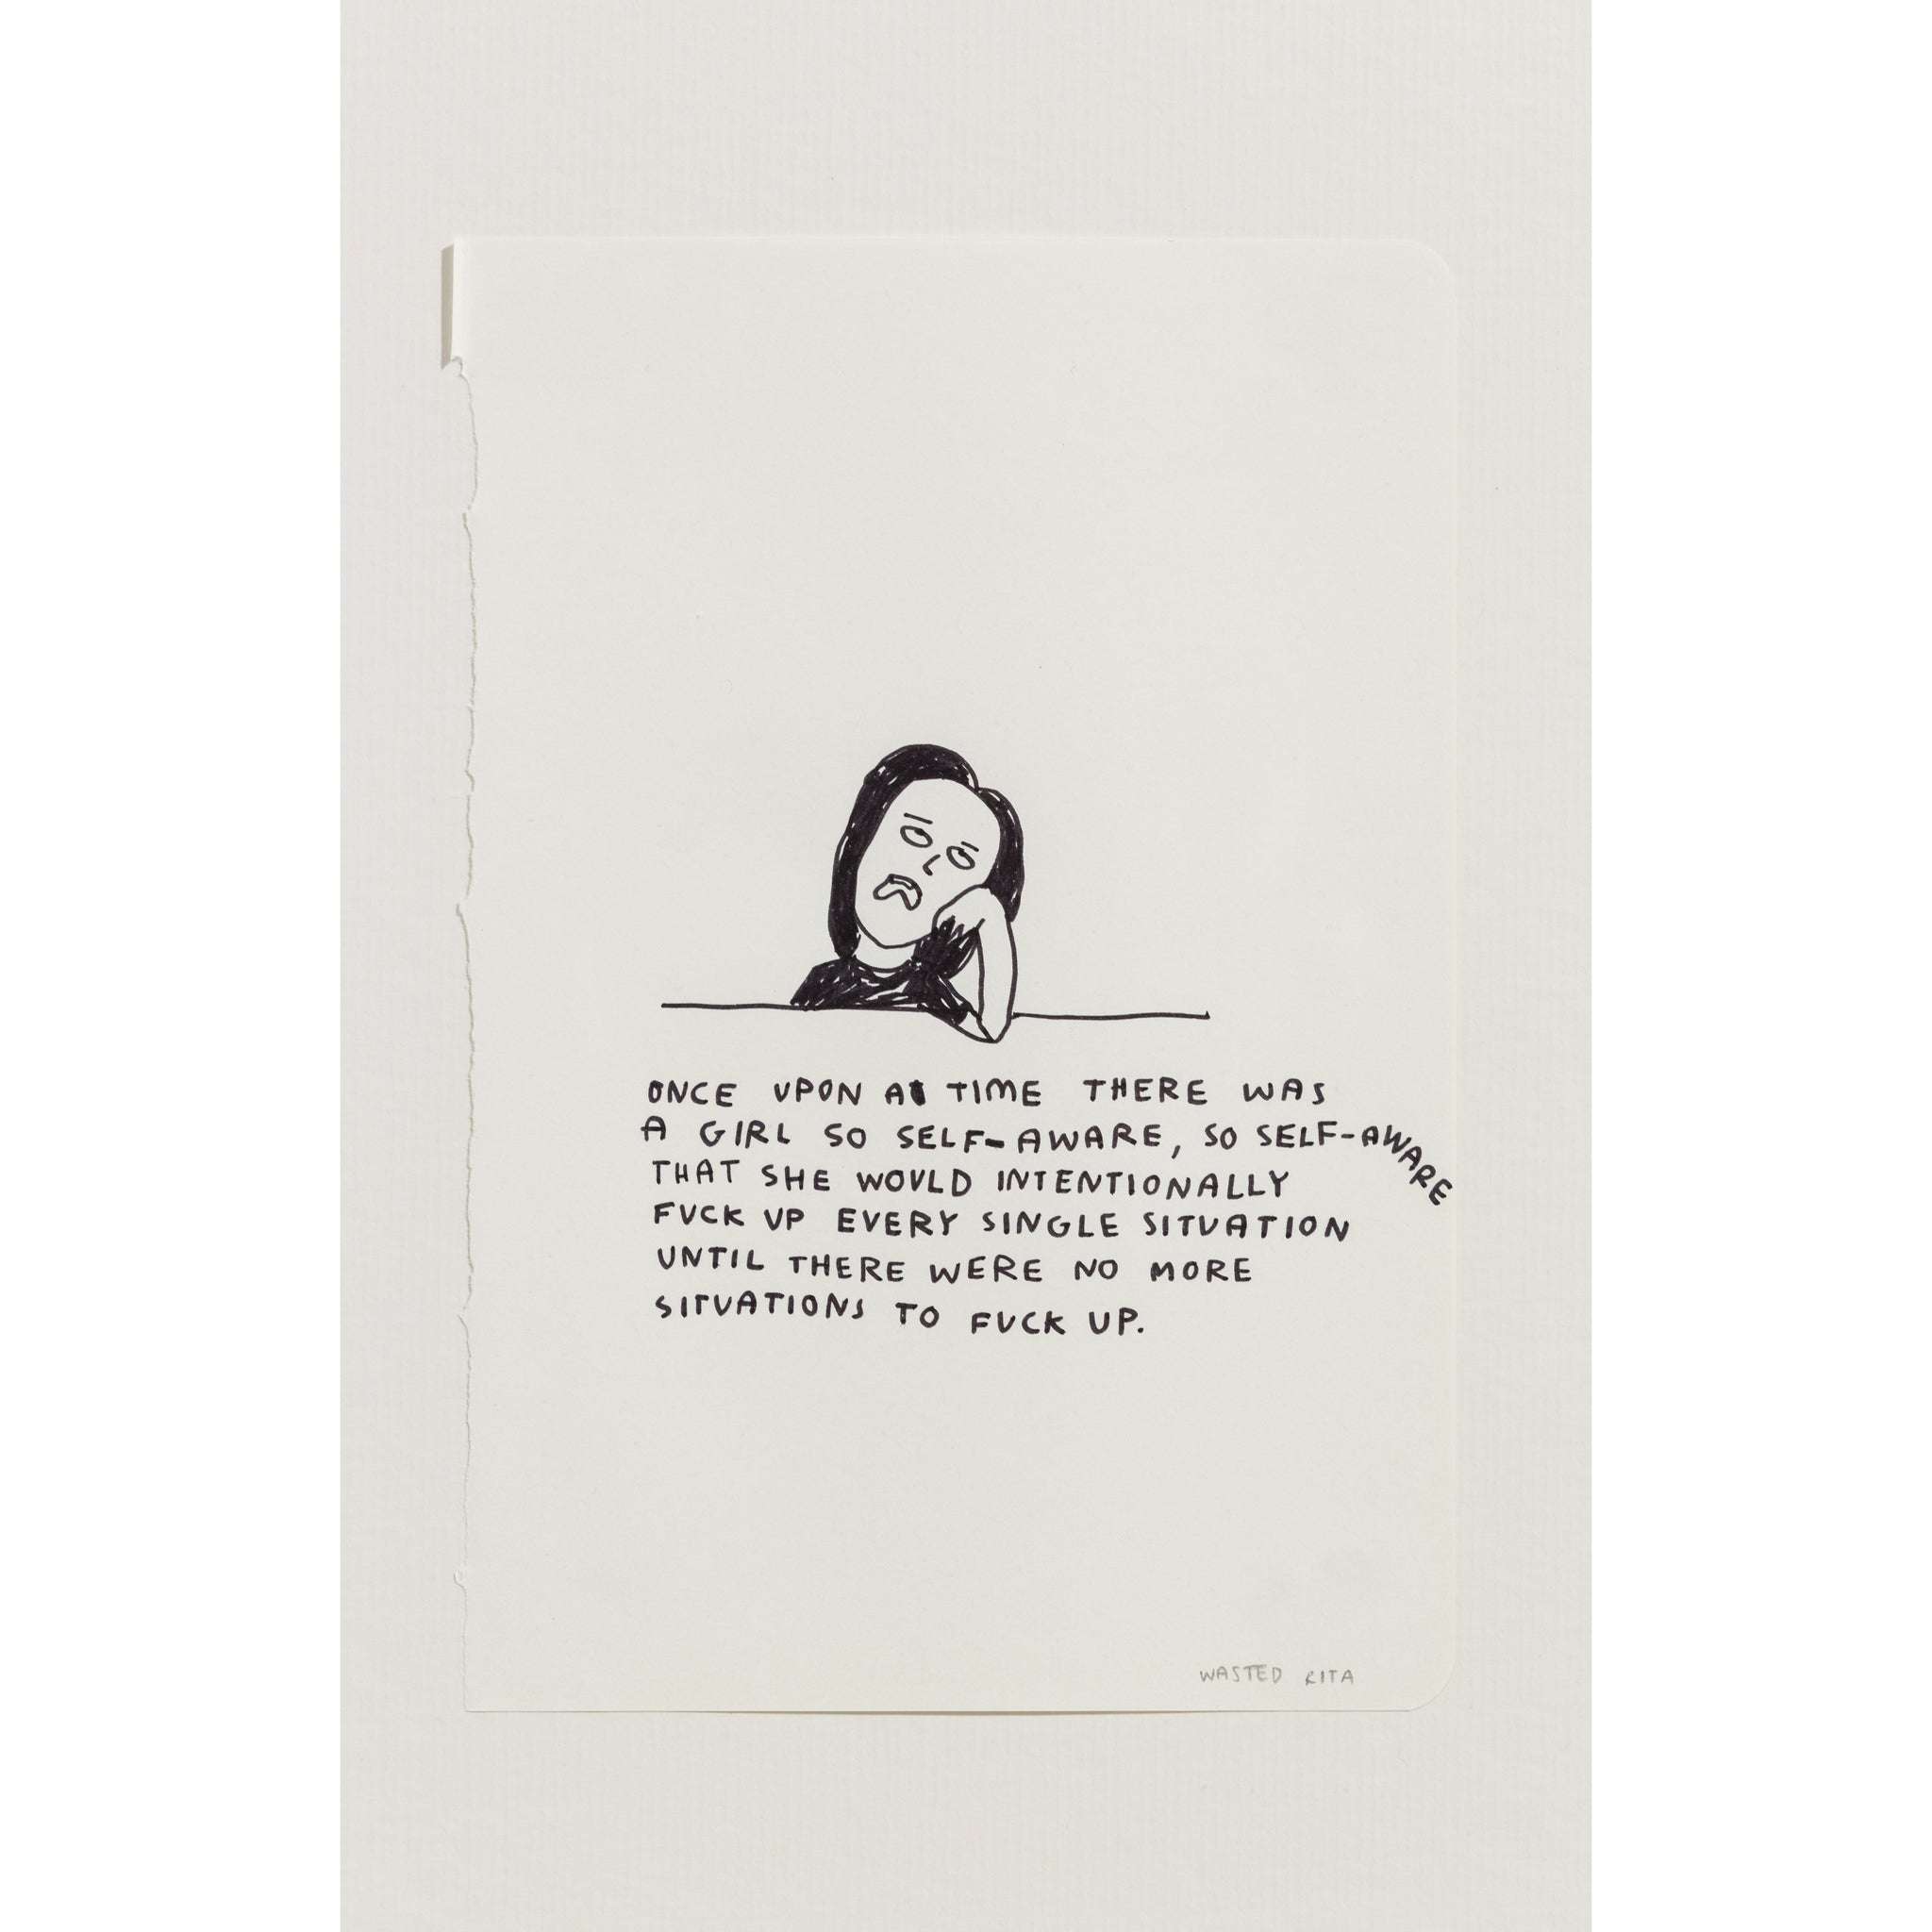 ONCE UPON A TIME THERE WAS
A GIRL SO SELF-AWARE, SO SELF-AWARE
THAT SHE WOULD INTENTIONALLY
FUCK UP EVERY SINGLE SITUATION
UNTIL THERE WERE NO MORE
SITUATIONS TO FUCK UP.
WASTED RITA